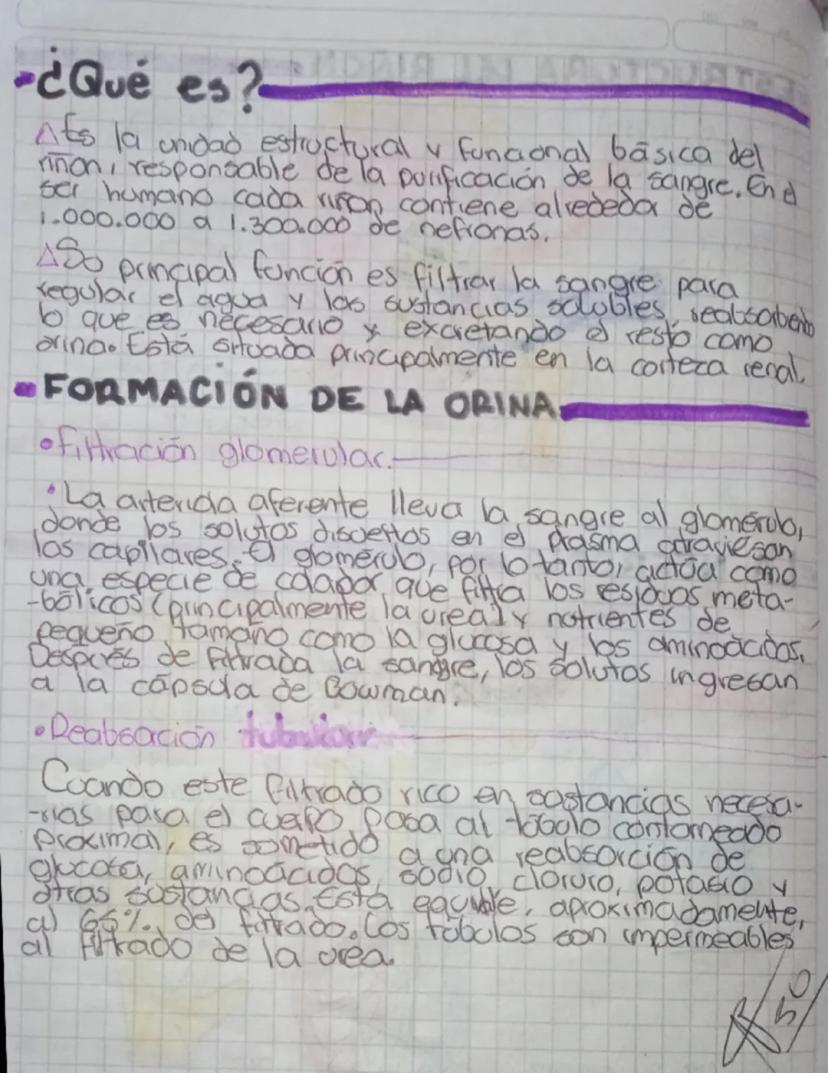 -¿Qué es?
Es la unidad estructural y funcional básica del
riñon, responsable de la purificación de la sangre. En el
ser humano cada riñon contiene alrededor de
1.000.000 a 1.300.000 de nefronas.
Su principal función es filtrar la sangre para
regular el agua y las sustancias solubles, reabsorbiendo
lo que es necesario y excretando el resto como
orina. Está situada principalmente en la corteza renal.
- FORMACIÓN DE LA ORINA
• Filtración glomerular.
• La arteriola aferente lleva la sangre al glomérulo,
donde los solutos disueltos en el plasma atraviesan
los capilares. El glomérulo, por lo tanto, actúa como
una especie de colador que filtra los residuos meta-
-bólicos (principalmente la urea) y nutrientes de
pequeño tamaño como la glucosa y los aminoácidos.
Después de filtrada la sangre, los solutos ingresan
a la cápsula de Bowman.
• Reabsoción tubular
Cuando este filtrado rico en sustancias necesa-
-rias para el cuerpo pasa al túbulo contorneado
proximal, es sometido a una reabsorción de
glucosa, aminoácidos, sodio, cloruro, potasio y
otras sustancias. Esta equivale, aproximadamente,
al 65% del filtrado. Los túbulos son impermeables
al filtrado de la urea.
50